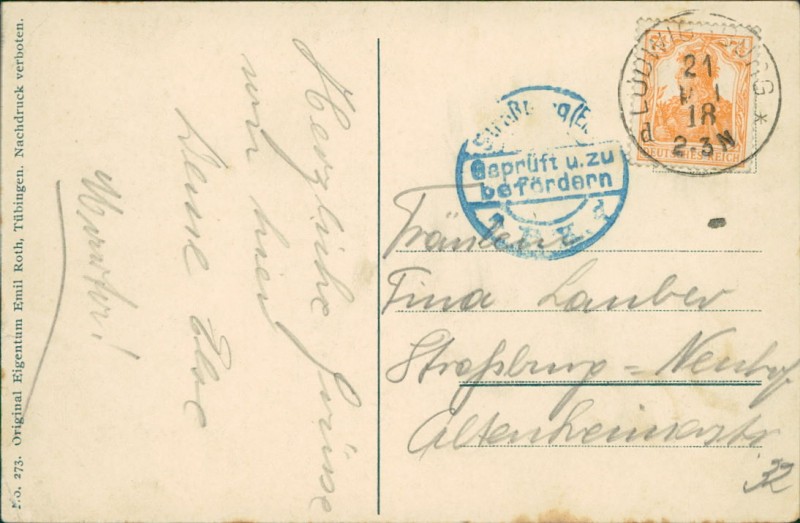 No. 273. Original Eigentum Emil Roth, Tübingen. Nachdruck verboten.
Herzliche Grüsse
von hier
Deine Else
LUDWIGSBURG *
21
VI
18
2-3 N
DEUTSCHES REICH
Straßburg (Els
Geprüft u. zu
befördern
Fräulein
Fina Lauber
Straßburg = Neuhof
Altenheimerstr
32